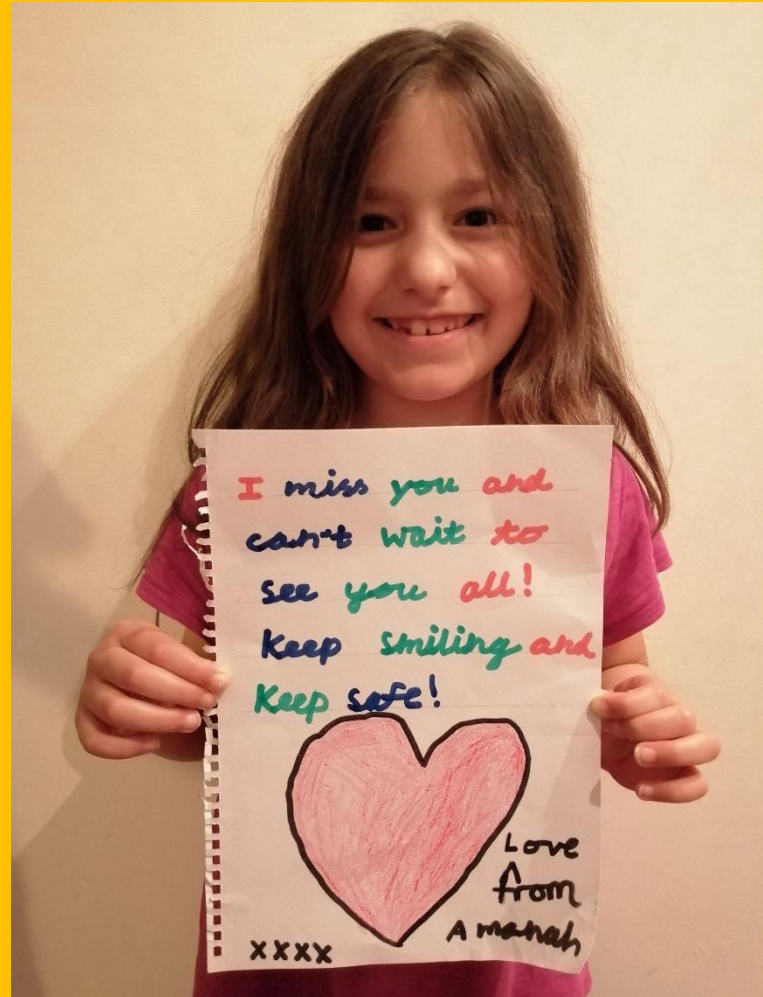 I miss you and
can't wait to
see you all!
Keep smiling and
Keep safe!
Love
from
Amanah
xxxx